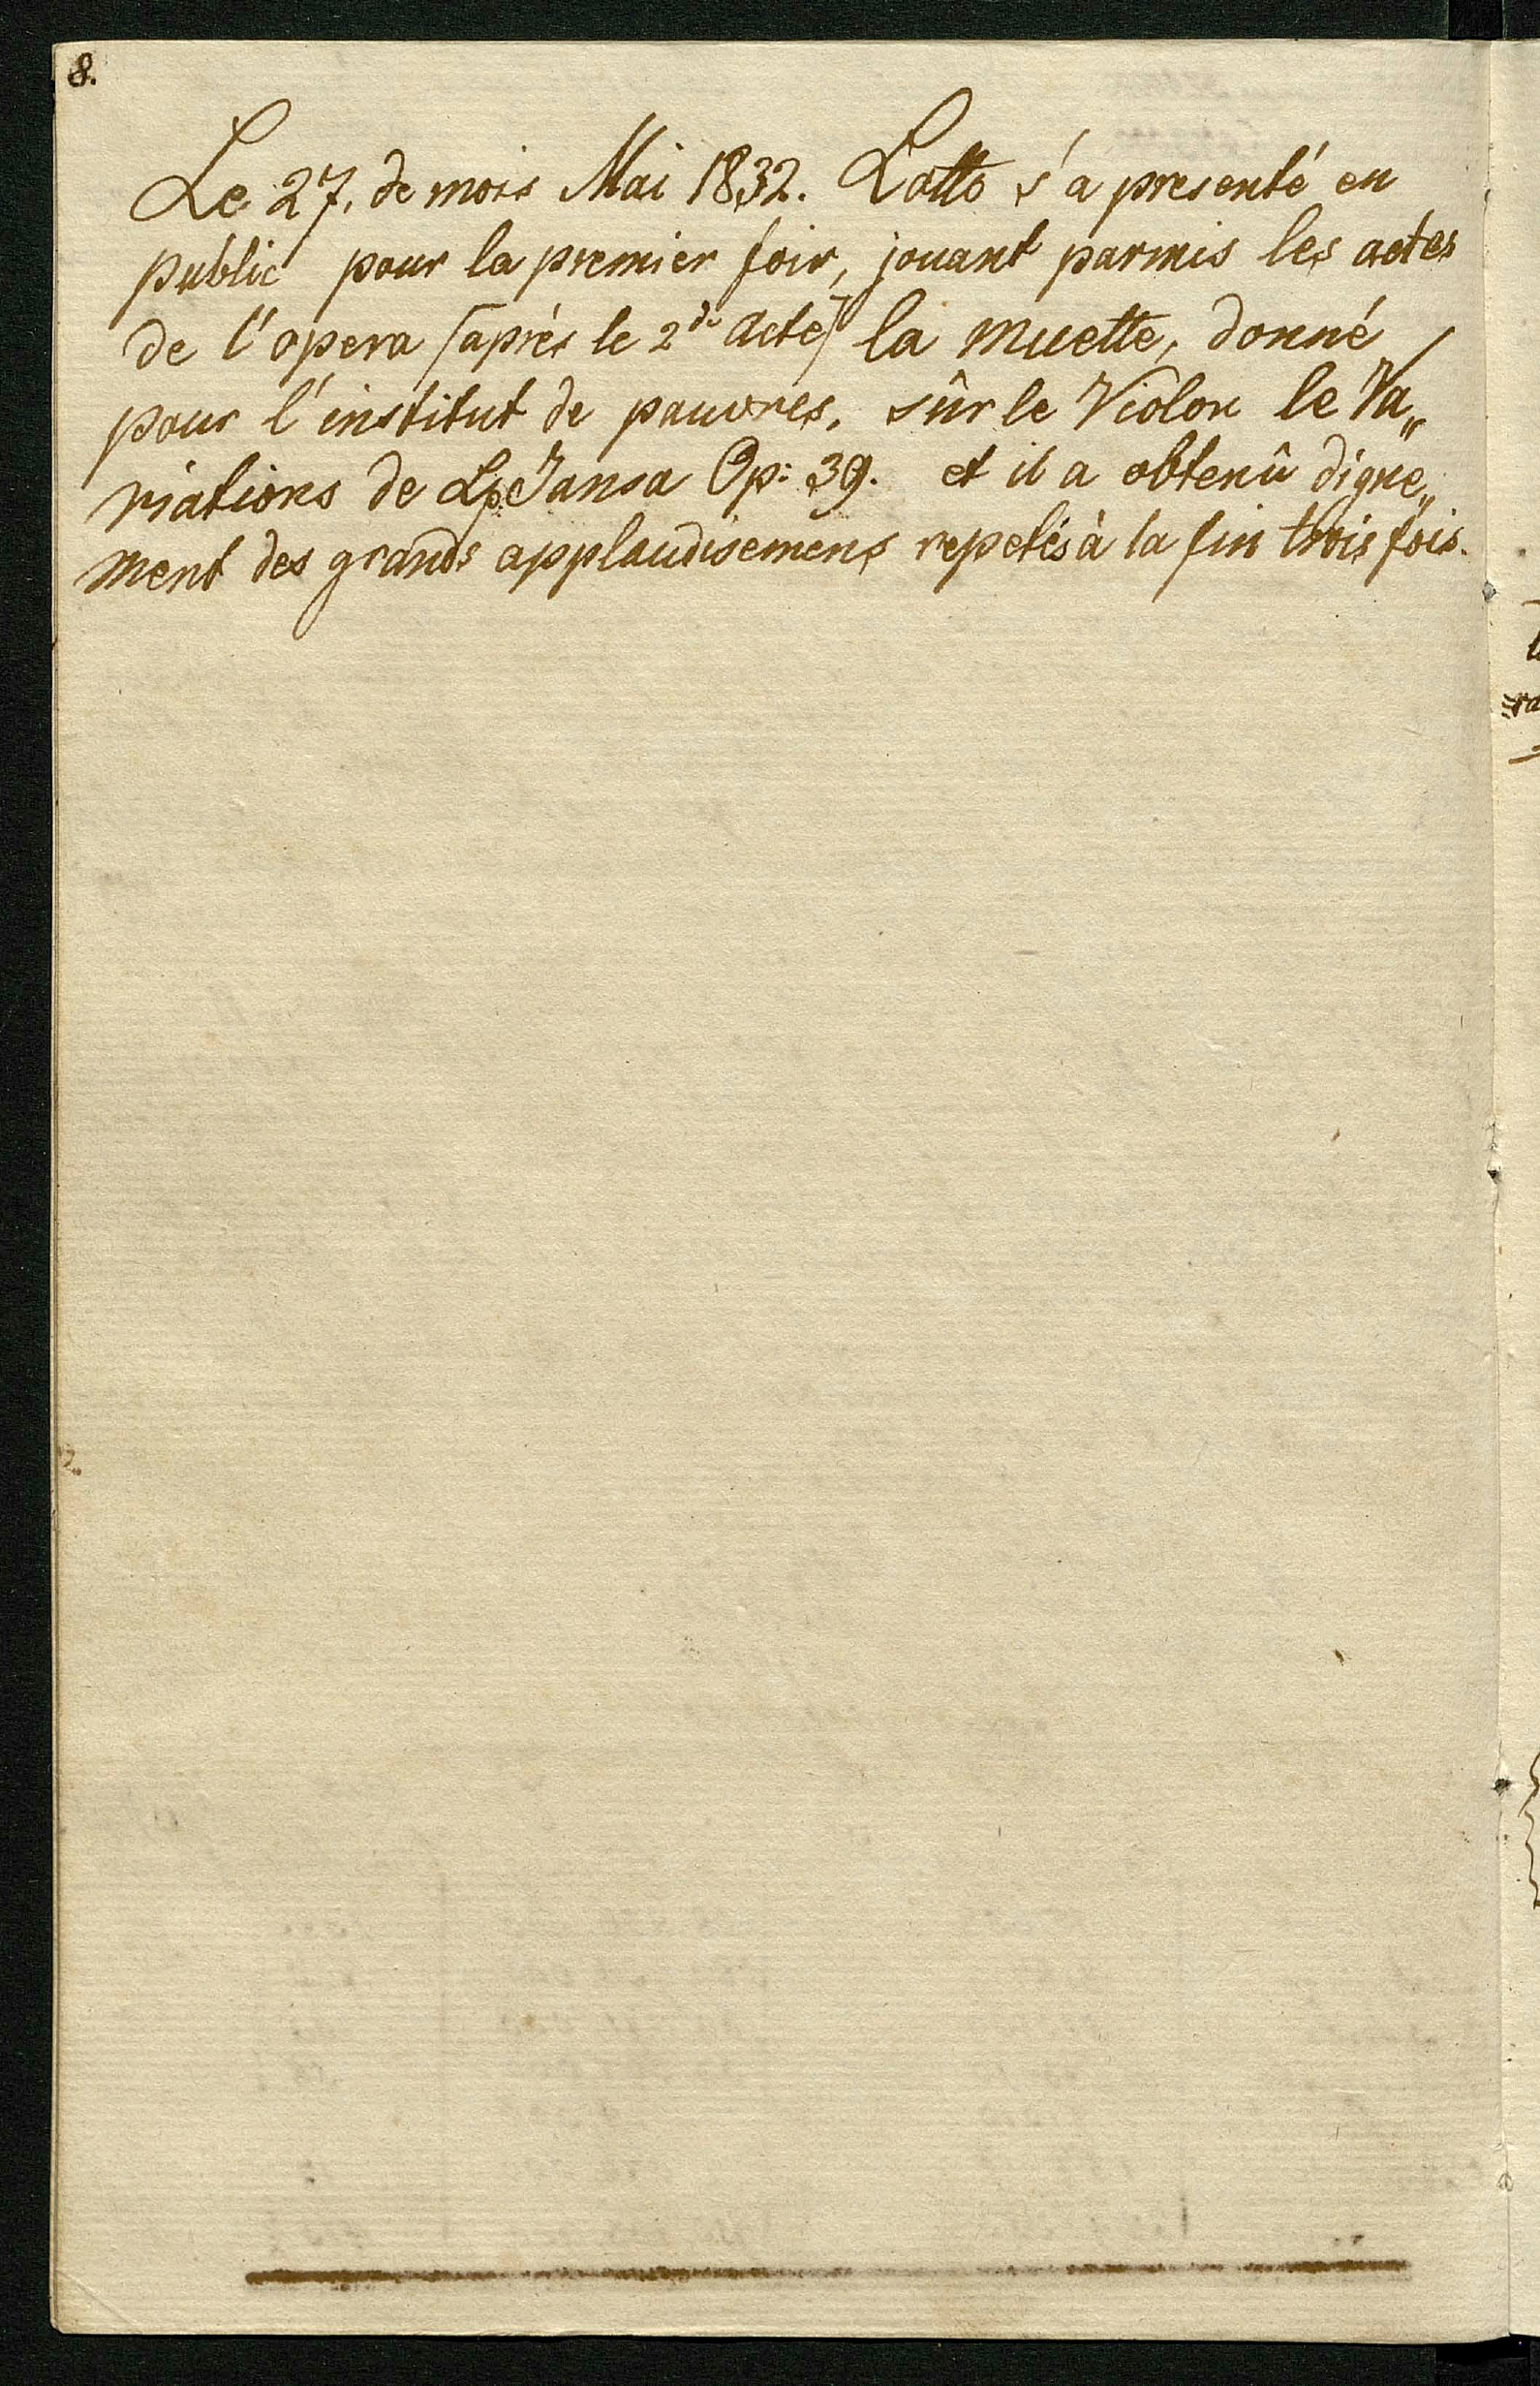 8.
Le 27. de mois Mai 1832. Lotto s'a presenté en
public pour la premier foir, jouant parmis les actes
de l'opera [après le 2de Acte] la muette, donné
pour l'institut de pauvres, sûr le Violon le Va„
riations de Jansa Op: 39. et il a obtenû digne„
ment des grands applaudisemens repetés à la fin trois fois.